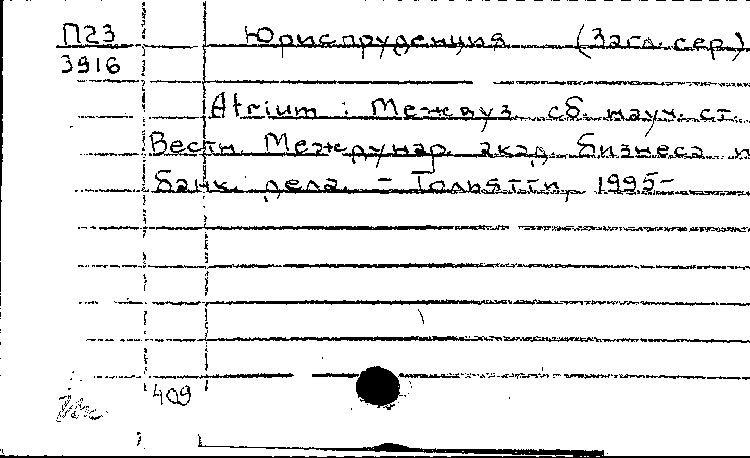 П23 Юриспруденция (Загл. сер.)
3916
Atrium : Межвуз. сб. науч. ст.
Вестн. Междунар. акад. бизнеса и
банк. дела. - Тольятти, 1995-
409